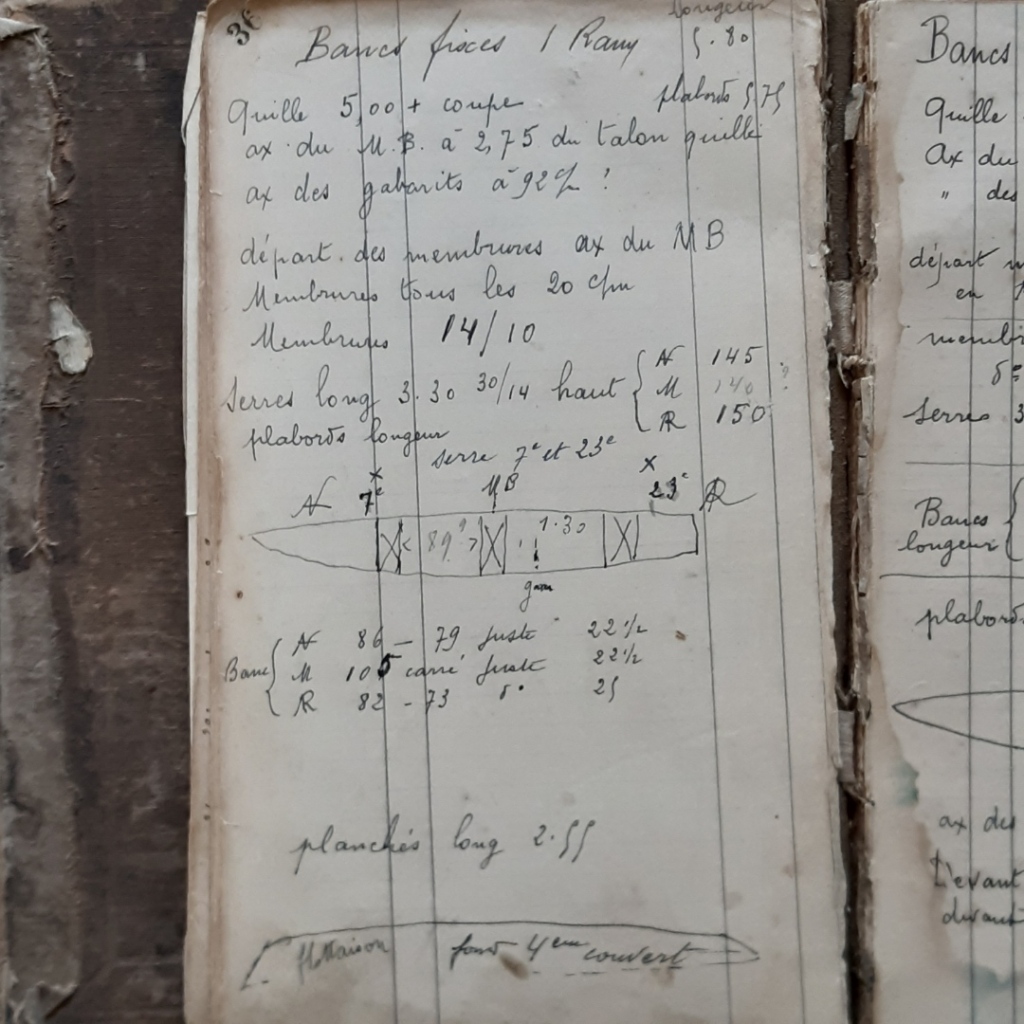 36
longueur
Bancs fixes 1 Rang 5.80
Quille 5,00 + coupe plabords 5 75
ax du M.B. à 2,75 du talon quille
ax des gabarits à 92 c/m ?
départ des membrures ax du M B
Membrures tous les 20 c/m
Membrures 14/10
Serres long 3.30 30/14 haut { AV 145
M 140 ?
AR 150
plabords longeur
serre 7e et 23e
x x
AV 7e MB 23e AR
< 89 ? > 1.30
Banc { AV 86 – 79 juste 22 1/2
M 105 carré juste 22 1/2
AR 82 – 73 do 25
planchés long 2.55
flottaison fond 4em couvert
Bancs
Quille
Ax du
" des
départ m
en
membr
do
Serres 3
Bancs {
longeur
plabords
ax des
L'evant
devant